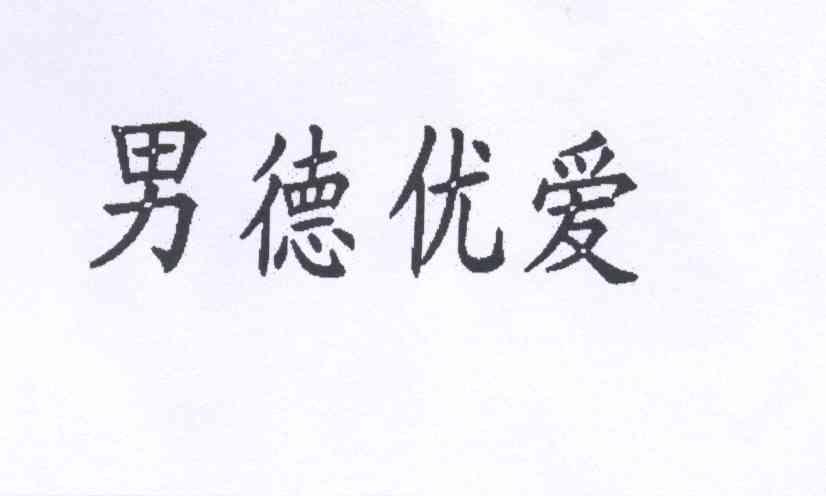 男德优爱